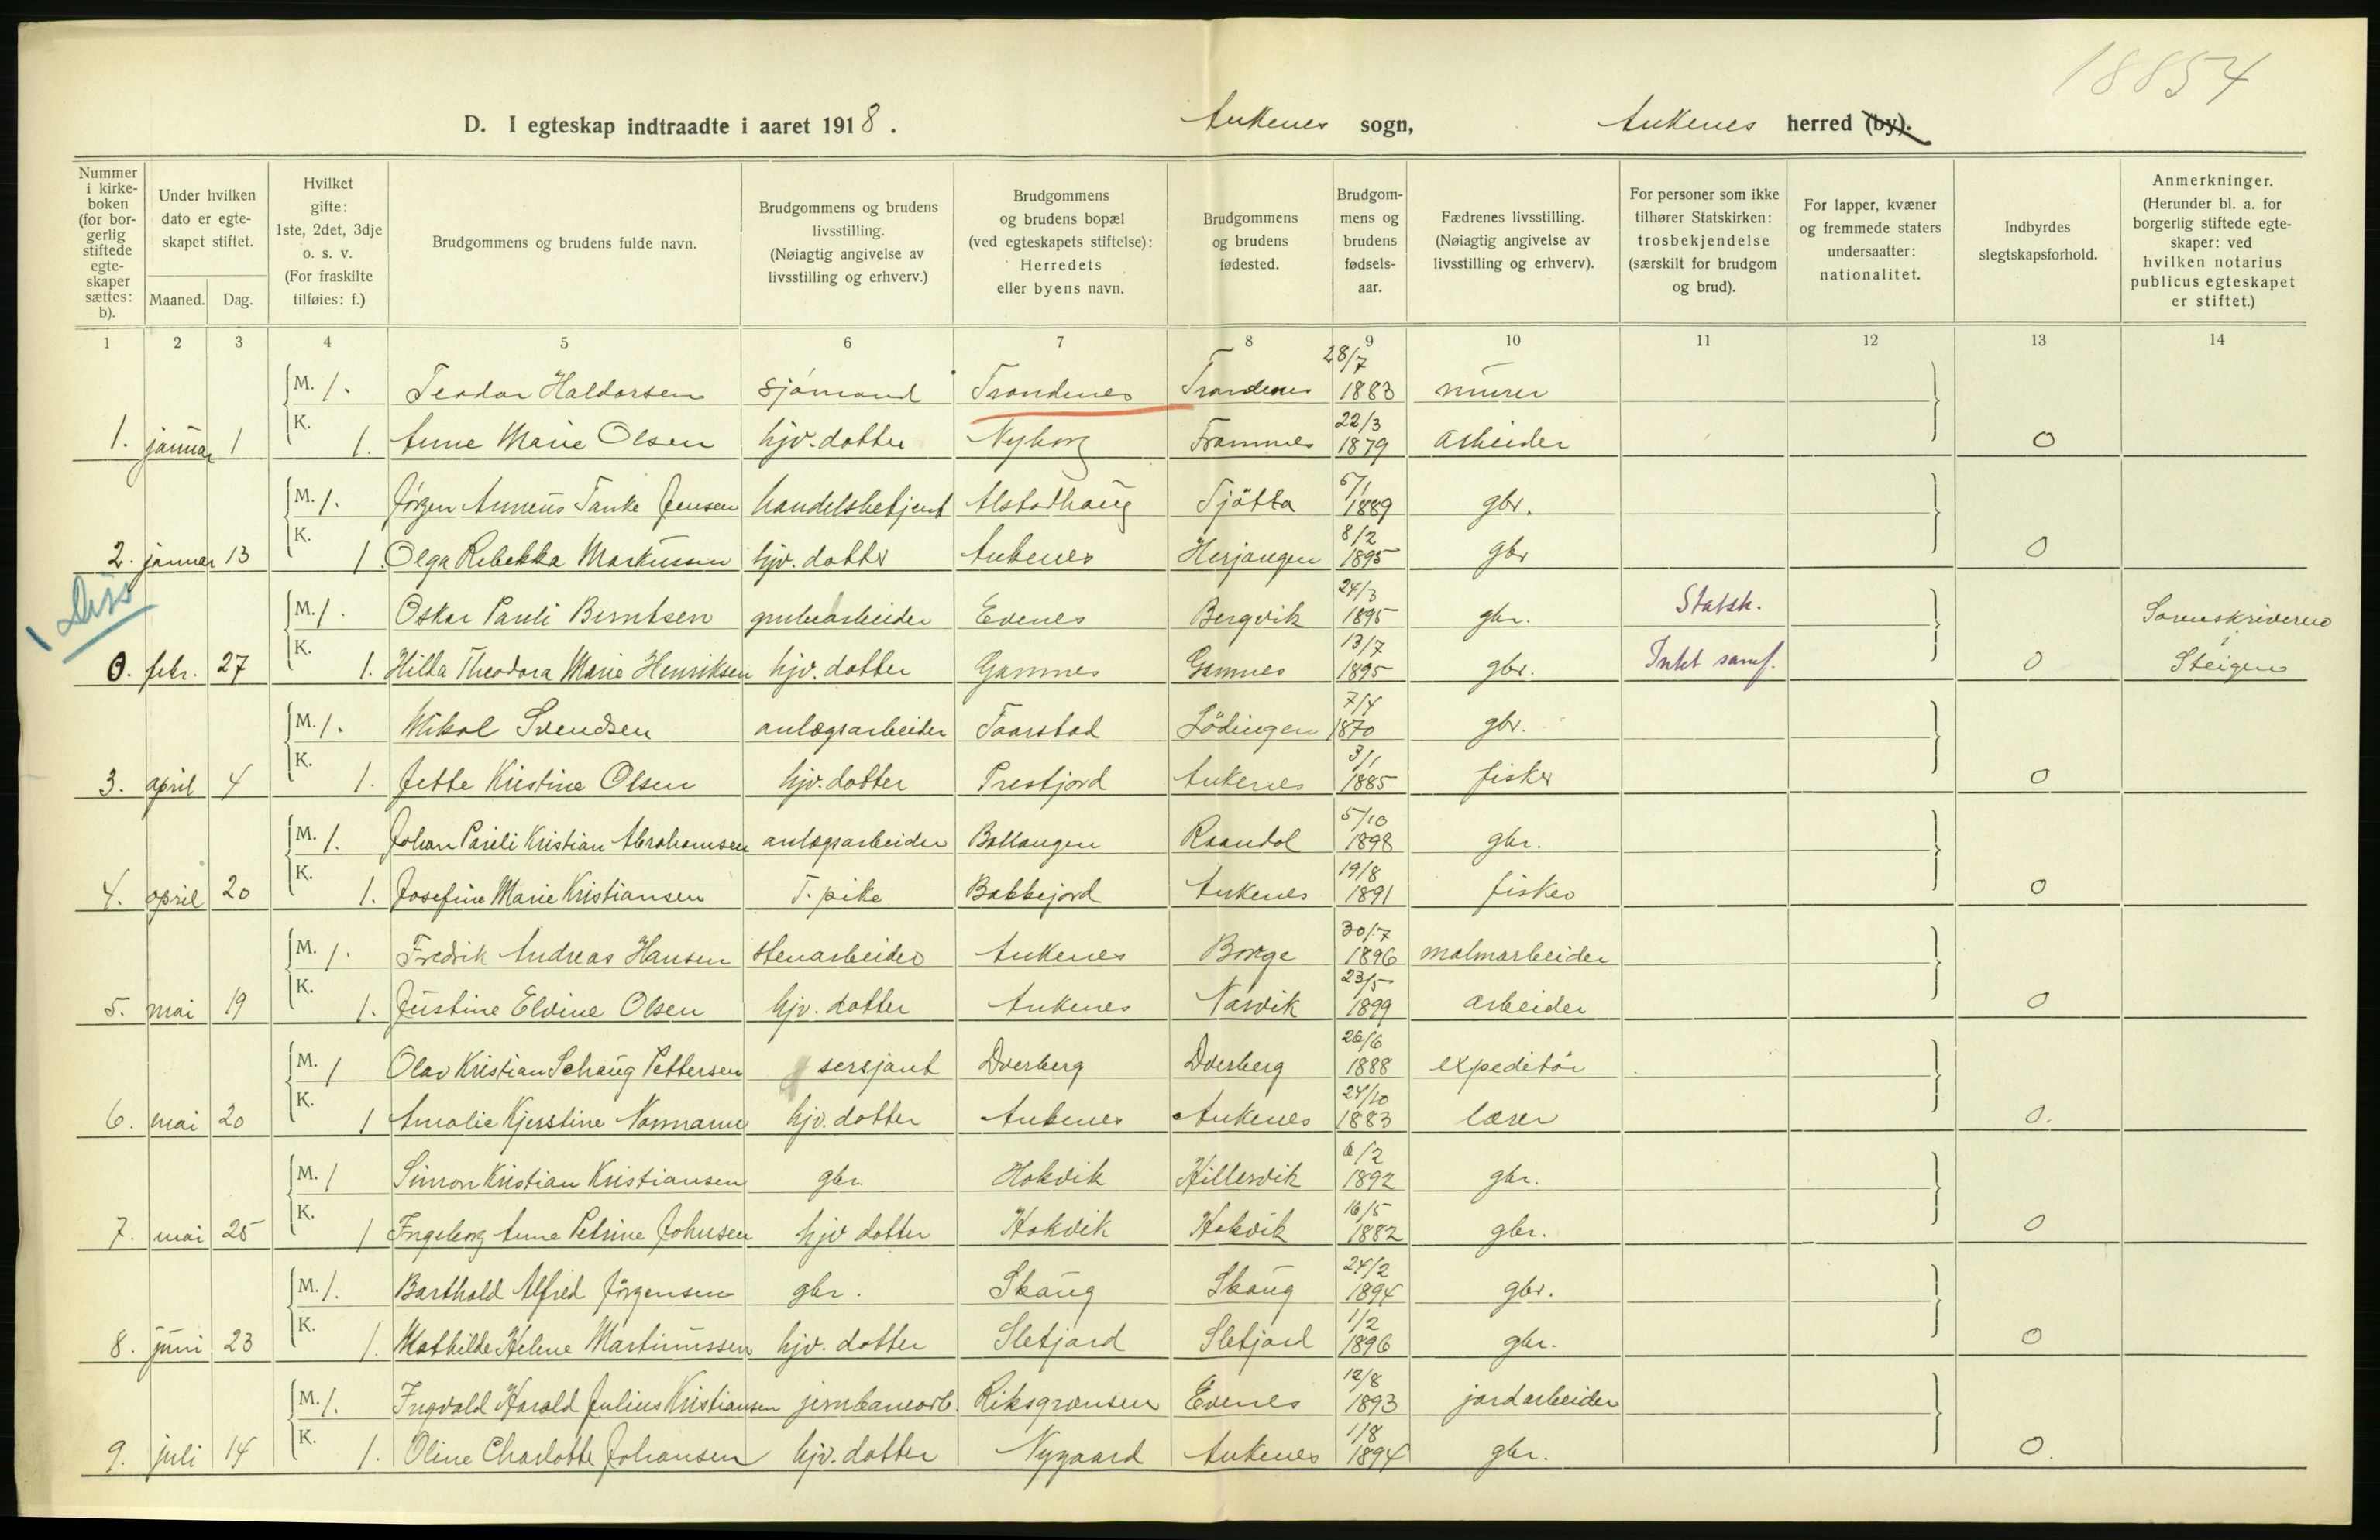 18854
D. I egteskap indtraadte i aaret 1918. Ankenes sogn, Ankenes herred (by).
Nummer i kirkeboken (for borgerlig stiftede egteskaper sættes: b).
Under hvilken dato er egteskapet stiftet.
Maaned. Dag.
Hvilket gifte: 1ste, 2det, 3dje o. s. v. (For fraskilte tilføies: f.)
Brudgommens og brudens fulde navn.
Brudgommens og brudens livsstilling. (Nøiagtig angivelse av livsstilling og erhverv.)
Brudgommens og brudens bopæl (ved egteskapets stiftelse): Herredets eller byens navn.
Brudgommens og brudens fødested.
Brudgommens og brudens fødselsaar.
Fædrenes livsstilling. (Nøiagtig angivelse av livsstilling og erhverv).
For personer som ikke tilhører Statskirken: trosbekjendelse (særskilt for brudgom og brud).
For lapper, kvæner og fremmede staters undersaatter: nationalitet.
Indbyrdes slegtskapsforhold.
Anmerkninger. (Herunder bl. a. for borgerlig stiftede egteskaper: ved hvilken notarius publicus egteskapet er stiftet.)
1 2 3 4 5 6 7 8 9 10 11 12 13 14
M. 1. Teodor Haldorsen sjömand Trondenes Trondenes 28/7 1883 murer
1. januar 1 K. 1. Anne Marie Olsen hjv. datter Nyborg Framnes 22/3 1879 Arbeider 0
M. 1. Jörgen Anneus Tanke Jensen handelsbetjent Alstadhaug Tjötta 5/1 1889 gbr.
2. januar 13 K. 1. Olga Rebekka Markussen hjv. datter Ankenes Herjangen 8/2 1895 gbr 0
Diss
M. 1. Oskar Pauli Berntsen grubearbeider Evenes Bergvik 24/3 1895 gbr. Statsk. Sorenskriveren
0. febr. 27 K. 1. Hilda Theodora Marie Henriksen hjv. datter Gamnes Gamnes 13/7 1895 gbr. Intet samf. 0 i Steigen
M. 1. Mikal Svendsen anlægsarbeider Taarstad Lödingen 7/4 1870 gbr.
3. april 4 K. 1. Jette Kristine Olsen hjv. datter Prestjord Ankenes 3/1 1885 fisker 0
M. 1. Johan Pauli Kristian Abrahamsen anlægsarbeider Ballangen Raandal 5/10 1898 gbr.
4. april 20 K. 1. Josefine Marie Kristiansen T. pike Bakkejord Ankenes 19/8 1891 fisker 0
M. 1. Fredrik Andreas Hansen stenarbeider Ankenes Borge 30/7 1896 malmarbeider
5. mai 19 K. 1. Justine Elvine Olsen hjv. datter Ankenes Narvik 23/5 1899 arbeider 0
M. 1 Olav Kristian Schaug Pettersen sersjant Dverberg Dverberg 26/6 1888 expeditör
6. mai 20 K. 1 Amalie Kjerstine Normann hjv. datter Ankenes Ankenes 24/10 1883 lærer 0.
M. 1 Simon Kristian Kristiansen gbr. Hokvik Hillesvik 6/2 1892 gbr.
7. mai 25 K. 1 Ingeborg Anne Petrine Johnsen hjv datter Hokvik Hokvik 16/5 1882 gbr. 0
M. 1. Barthold Alfred Jörgensen gbr. Skaug Skaug 24/2 1894 gbr.
8. juni 23 K. 1. Mathilde Helene Martinussen hjv. datter Sletjord Sletjord 1/2 1896 gbr. 0
M. 1. Ingvald Harald Julius Kristiansen jernbanearb. Riksgrænsen Evenes 12/8 1893 jordarbeider
9. juli 14 K. 1. Oline Charlotte Johansen hjv. datter Nygaard Ankenes 1/8 1894 gbr. 0.